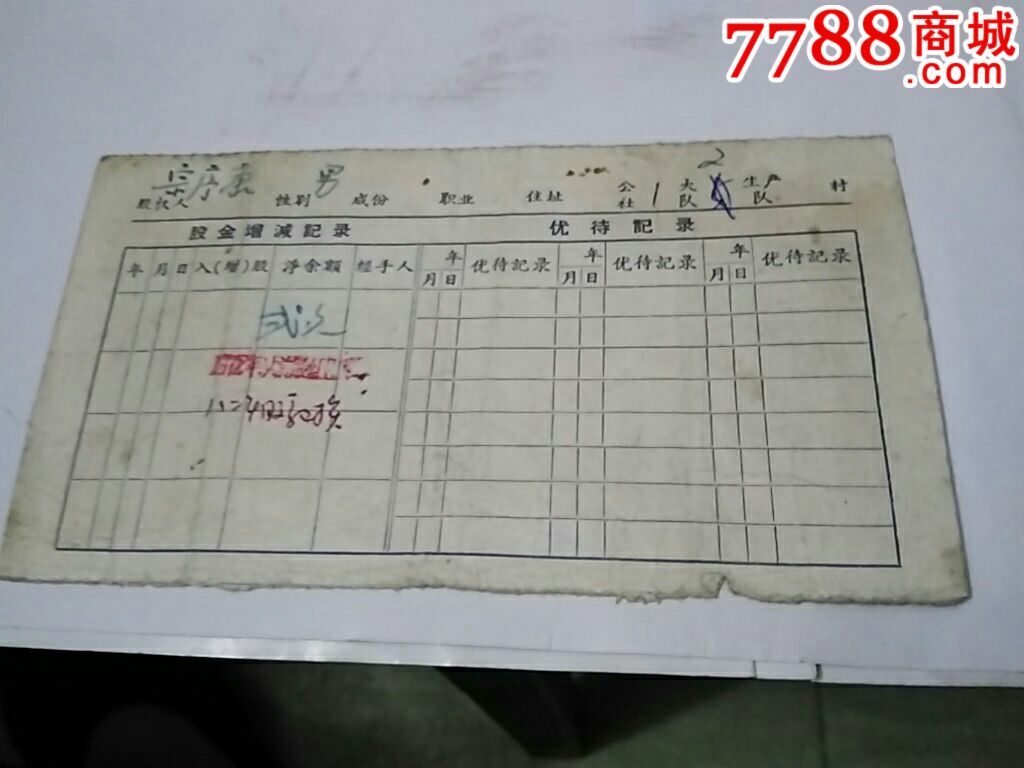 7788商城
.com
2
股权人 序康 性别 男 成份 职业 住址 公社 1 大队 生产队 村
股金增减記录 优待記录
年 月 日 入(增)股 净余額 經手人 年 月 日 优待記录 年 月 日 优待記录 年 月 日 优待記录
弍元
八二年股 换